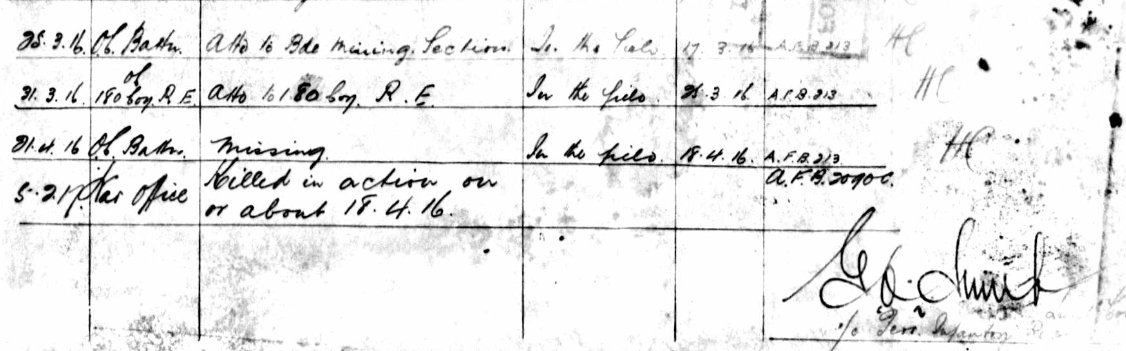 25.3.16. Ob. Battn. Atto to Bde Mining Section. In the Field 17.3.16 A.F.B.213 HC
of
31.3.16. 180 Coy R E Atto to 180 Coy. R.E. In the field. 26.3.16. A.F.B.213 HC
21.4.16 Ob. Battn. Missing. In the field. 18.4.16. A.F.B.213 HC
5.2.17. War Office Killed in action on A.F.B.2090C.
or about 18.4.16.
Smith
i/c Terr Infantry